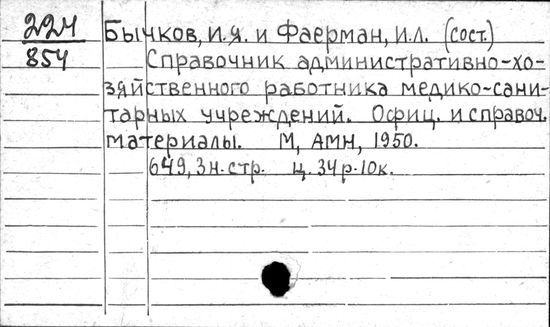 224
854
Бычков, И.Я. и Фаерман, И.Л. (сост.)
Справочник административно-хо-
зяйственного работника медико-сани-
тарных учреждений. Офиц. и справоч.
материалы. М, АМН, 1950.
649, 3 н. стр. ц. 34 р. 10 к.